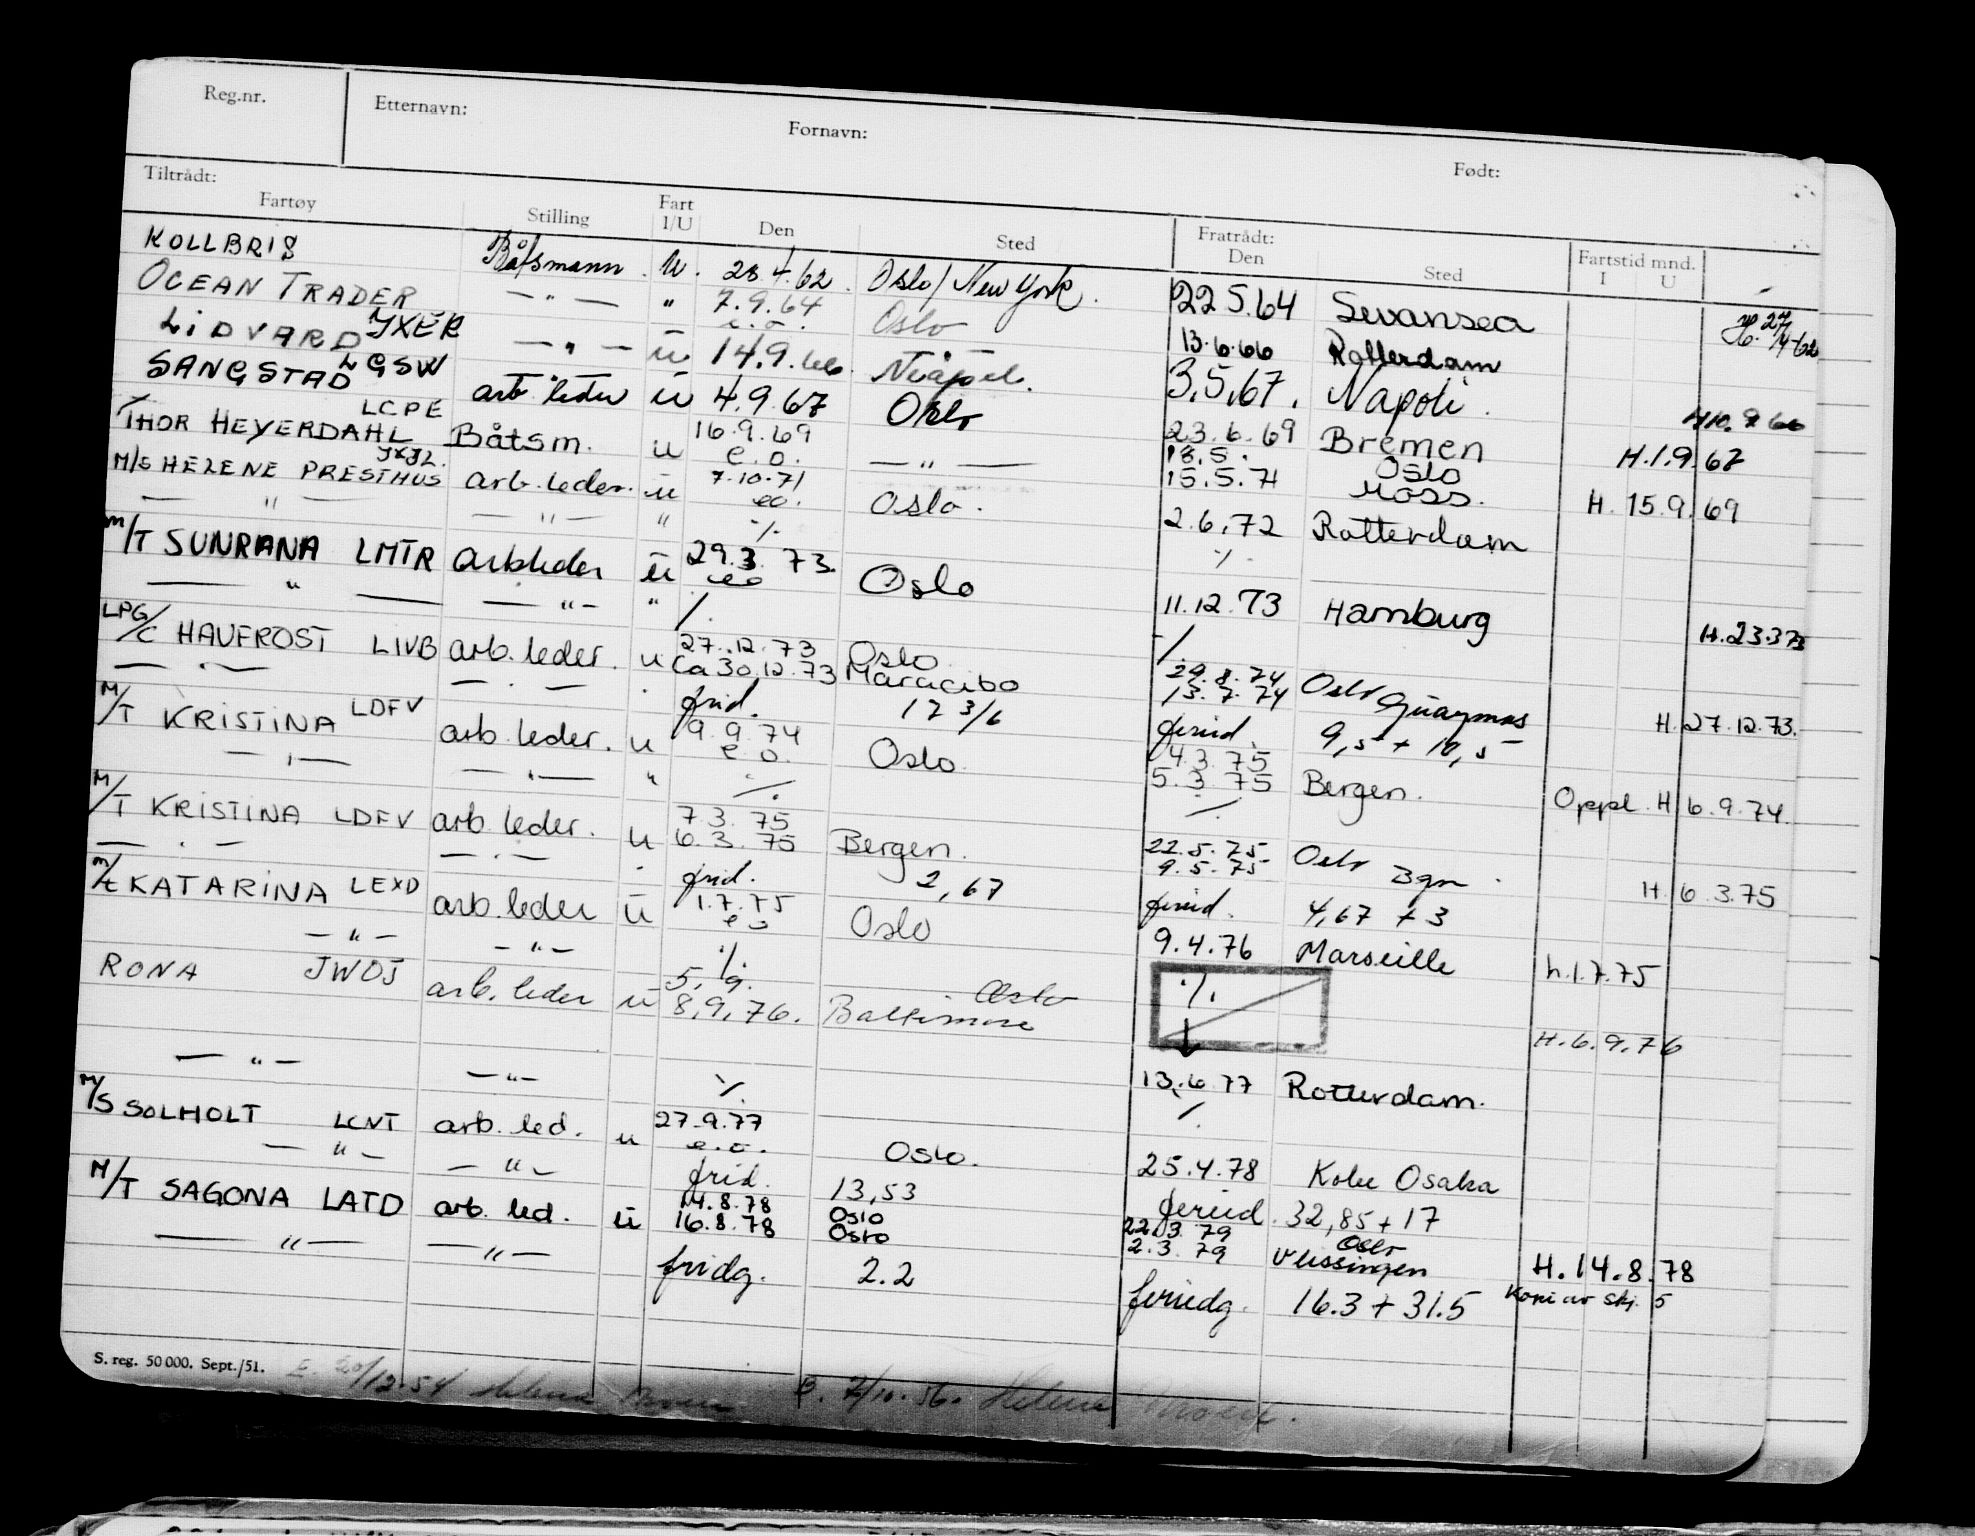 Reg.nr. Etternavn: Fornavn: Født:
Tiltrådt: Fratrådt: Fartstid mnd.
Fartøy Stilling Fart I/U Den Sted Den Sted I U
KOLLBRIS Båtsmann U. 28.4.62. Oslo/New York. 22.5.64 Swansea
OCEAN TRADER — " — " 7.9.64 Oslo 13.6.66 Rotterdam 27/4-62
e.o.
LIDVARD JXER — " — ū 14.9.66 Neapel. 3.5.67. Napoli.
SANGSTAD LGSW arb. leder ū 4.9.67 Oslo 23.6.69 Bremen H10.9 66
THOR HEYERDAHL LCPE Båtsm. u 16.9.69 — " — 18.5. Oslo H.1.9.67
e.o. 15.5.71 Moss.
M/S HELENE PRESTHUS JXJL. arb. leder. ū 7.10.71 Oslo. 2.6.72 Rotterdam H. 15.9.69
eo.
— " — — " — " ·/. ·/.
M/T SUNRANA LMTR arbleder ū 29.3.73. Oslo 11.12.73 Hamburg H.23.3 73
eo
— " — — " — " ·/. ·/.
LPG/C HAVFROST LIVB arb. leder. u 27.12.73 Oslo 29.8.74 Oslo
Ca 30.12.73 Maracibo 13.7.74 Guaymas H.27.12.73.
— " — — " — " frid. 17 3/6 feried. 9,5 + 10,5
M/T KRISTINA LDFV arb. leder. u 9.9.74 Oslo 4.3.75
e.o. 5.3.75 Bergen. Oppl. H 6.9.74.
— " — — " — " ·/. ·/.
M/T KRISTINA LDFV arb. leder. u 7.3.75 22.5.75 Oslo
6.3.75 Bergen. 9.5.75 Bgn H. 6.3.75
— " — — " — " frid. 2,67 feried. 4,67 + 3
M/t KATARINA LEXD arb. leder ū 1.7.75 Oslo 9.4.76 Marseille h.1.7.75
eo
— " — — " — ·/. ·/.
RONA JWOJ arb. leder ū 5.9. Oslo
8.9.76. Baltimore H.6.9.76
13.6.77 Rotterdam.
— " — — " — ·/. ·/.
M/S SOLHOLT LCNT arb. led. u 27.9.77 Oslo. 25.4.78 Kobe Osaka
e.o.
— " — — " — frid. 13,53 feried. 32,85 + 17
M/T SAGONA LATD arb. led. ū 14.8.78 Oslo 22.3.79 Oslo
16.8.78 Oslo 2.3.79 Vlissingen H.14.8.78
— " — — " — fridg. 2.2 feriedg. 16.3 + 31.5 Kopi av skj. 5
S. reg. 50 000. Sept./51. E. 20/12-54 Helene B. 2/10.56. Helene